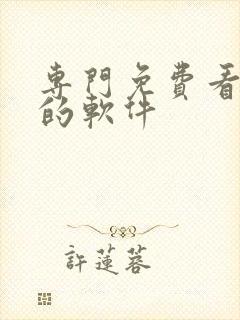 專門免費看
的軟件
許蓮蓉